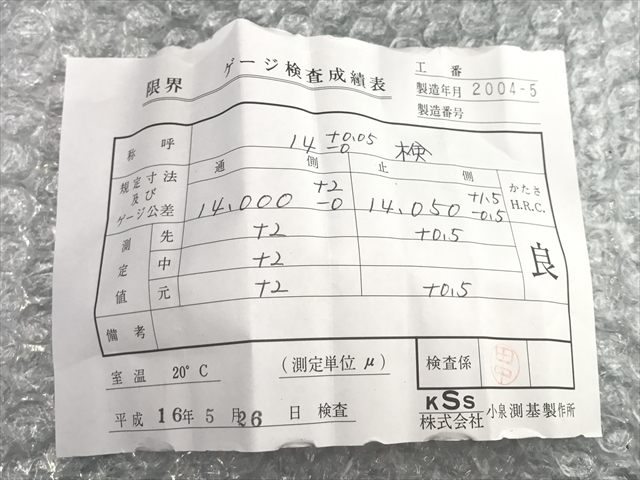 限界 ゲージ検査成績表
工番
製造年月 2004-5
製造番号
称呼 14 +0.05 -0 検
規定寸法及びゲージ公差 通側 14.000 +2 -0 止側 14.050 +1.5 -0.5 かたさ H.R.C.
測定値 先 +2 +0.5 良
中 +2
元 +2 +0.5
備考
室温 20°C (測定単位μ) 検査係
平成 16年 5月 26日 検査
KSS
株式会社 小泉測基製作所